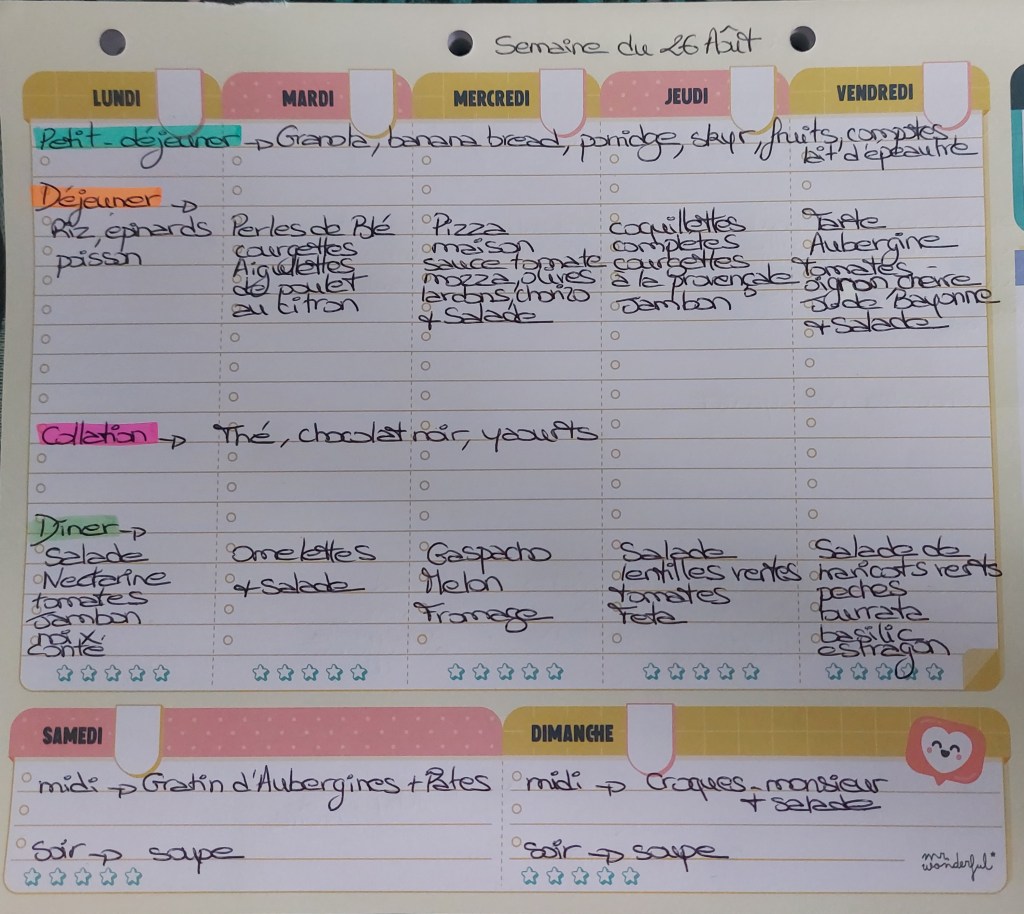 Semaine du 26 Août
LUNDI
MARDI
MERCREDI
JEUDI
VENDREDI
Petit-déjeuner → Granola, banana bread, porridge, skyr, fruits, compotes,
lait d'épeautre
Déjeuner →
Riz, épinards
poisson
Perles de Blé
courgettes
Aiguillettes
de poulet
au citron
Pizza
maison
sauce tomate
mozza, olives
lardons, chorizo
+ Salade
coquillettes
completes
courgettes
à la provençale
Jambon
Tarte
Aubergine
tomates
oignon chèvre
J. de Bayonne
+ Salade
Collation → Thé, chocolat noir, yaourts
Dîner →
Salade
Nectarine
tomates
Jambon
noix
conté
Omelettes
+ Salade
Gaspacho
Melon
Fromage
Salade
lentilles vertes
tomates
Feta
Salade de
haricots verts
peches
burrata
basilic
estragon
SAMEDI
midi → Gratin d'Aubergines + Pâtes
soir → soupe
DIMANCHE
midi → Croques-monsieur
+ salade
soir → soupe
mr.
wonderful*